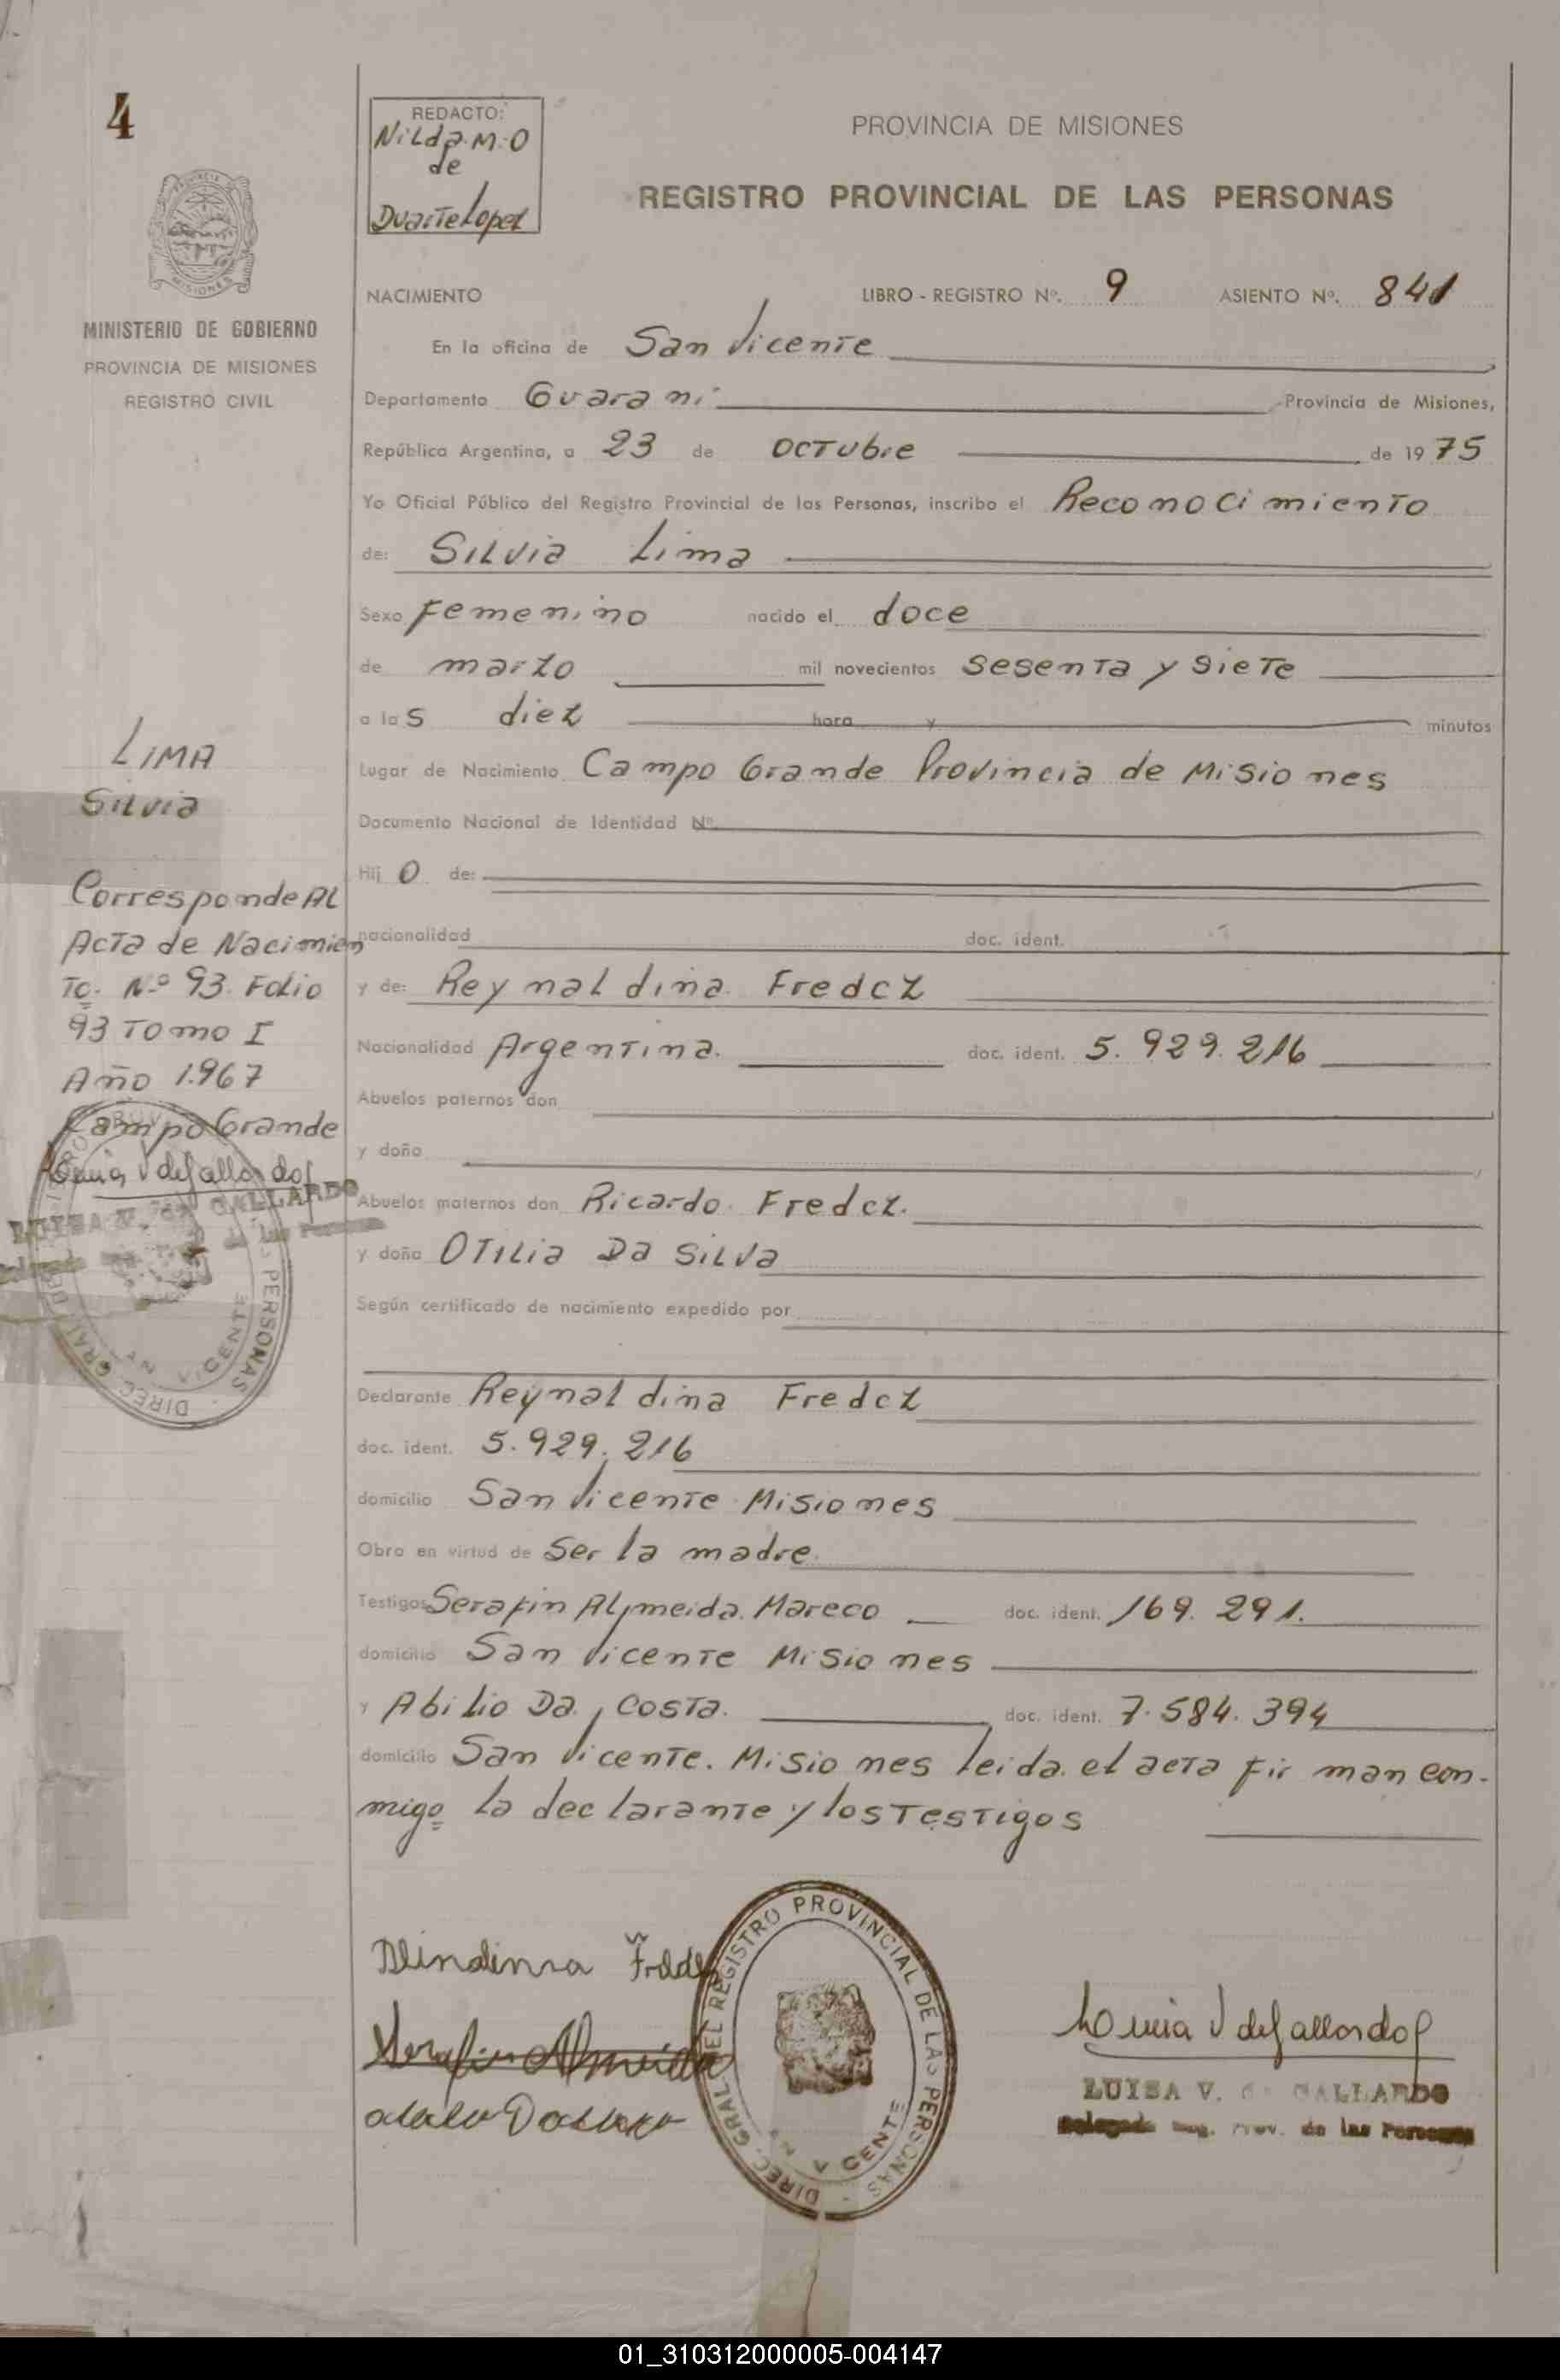 4
REDACTO:
Nilda. M. O
de
Duarte Lopez
PROVINCIA DE MISIONES
REGISTRO PROVINCIAL DE LAS PERSONAS
MINISTERIO DE GOBIERNO
PROVINCIA DE MISIONES
REGISTRO CIVIL
NACIMIENTO LIBRO - REGISTRO Nº. 9 ASIENTO Nº. 841
En la oficina de San Vicente
Departamento Guarani Provincia de Misiones,
República Argentina, a 23 de Octubre de 1975
Yo Oficial Público del Registro Provincial de las Personas, inscribo el Reconocimiento
de: Silvia Lima
Sexo Femenino nacido el doce
de marzo mil novecientos sesenta y siete
a las diez hora y minutos
Lugar de Nacimiento Campo Grande Provincia de Misiones
Documento Nacional de Identidad Nº
Hij o de:
nacionalidad doc. ident.
y de: Reynaldina Fredez
Nacionalidad Argentina. doc. ident. 5.929.216
Abuelos paternos don
y doña
Abuelos maternos don Ricardo Fredez.
y doña Otilia Da Silva
Según certificado de nacimiento expedido por
Declarante Reynaldina Fredez
doc. ident. 5.929.216
domicilio San Vicente Misiones
Obra en virtud de Ser la madre
Testigos Serafin Almeida. Mareco doc. ident. 169.291.
domicilio San Vicente Misiones
y Abilio Da Costa. doc. ident. 7.584.394
domicilio San Vicente. Misiones leida el acta firman con-
migo la declarante y los Testigos
LIMA
Silvia
Corresponde AL
Acta de Nacimien
To. Nº 93. Folio
93 Tomo I
Año 1.967
Campo Grande
LUISA V. de GALLARDO
DIREC. GRAL. DEL REGISTRO PROVINCIAL DE LAS PERSONAS
SAN VICENTE
Serafin Almeida
LUISA V. de GALLARDO
Delegada Reg. Prov. de las Personas
01_310312000005-004147